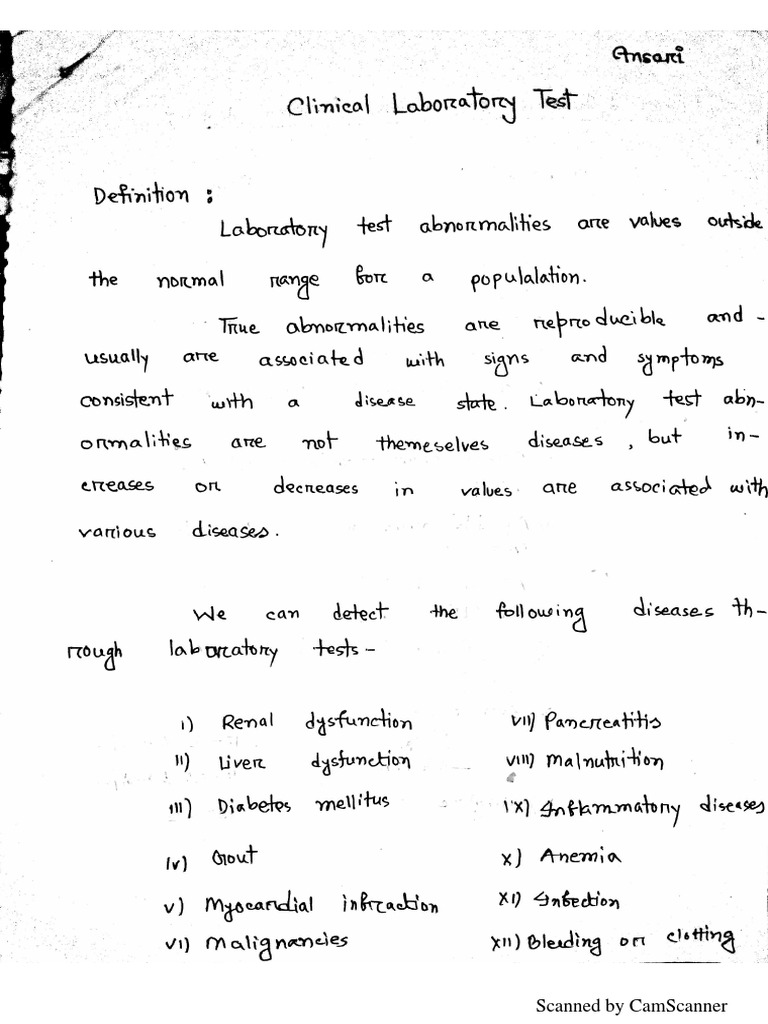 Ansari
Clinical Laboratory Test
Definition :
Laboratory test abnormalities are values outside
the normal range for a populalation.
True abnormalities are reproducible and -
usually are associated with signs and symptoms
consistent with a disease state. Laboratory test abn-
ormalities are not themeselves diseases, but in-
creases or decreases in values are associated with
various diseases.
We can detect the following diseases th-
rough laboratory tests -
i) Renal dysfunction
ii) Liver dysfunction
iii) Diabetes mellitus
iv) Gout
v) Myocardial infraction
vi) Malignancies
vii) Pancreatitis
viii) Malnutrition
ix) Inflammatory diseases
x) Anemia
xi) Infection
xii) Bleeding or clotting
Scanned by CamScanner